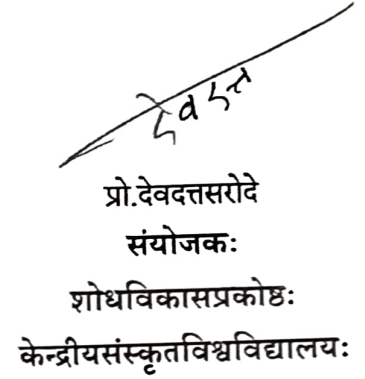 देवदत्त
प्रो.देवदत्तसरोदे
संयोजकः
शोधविकासप्रकोष्ठः
केन्द्रीयसंस्कृतविश्वविद्यालयः